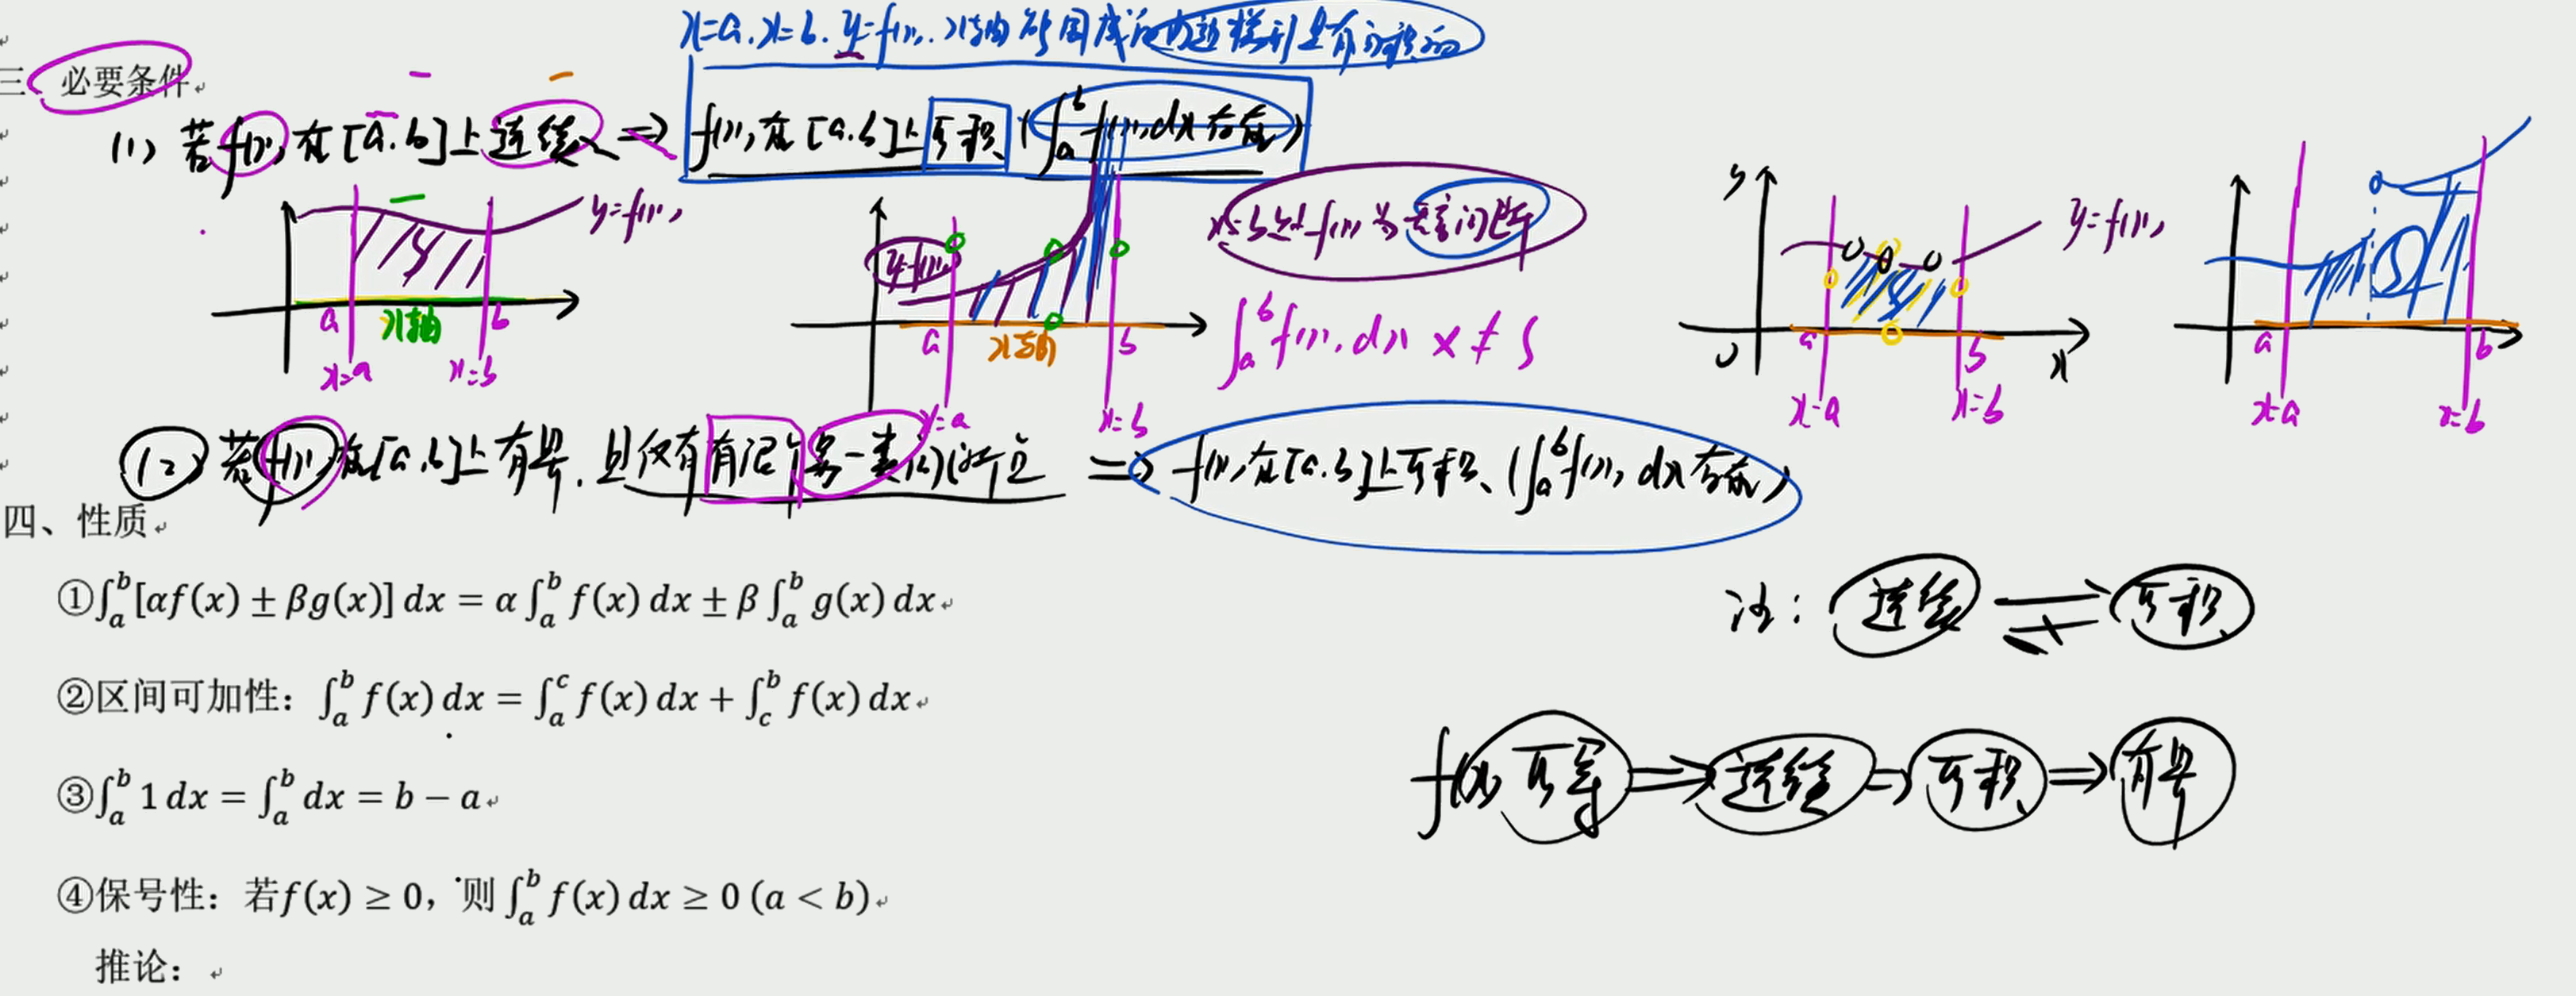 x=a.x=b.y=f(x).x轴所围成的曲边梯形是有面积的
三、必要条件
(1) 若f(x)在[a.b]上连续 ⇒ f(x)在[a.b]上可积 (∫_a^b f(x)dx存在)
y=f(x)
a x轴 b
x=a x=b
y=f(x)
x=b处f(x)为无穷间断
a x轴 b
x=a x=b
∫_a^b f(x)dx × ≠ S
y
y=f(x)
O a b x
x=a x=b
S
a b
x=a x=b
(2) 若f(x)在[a.b]上有界.且仅有有限个第一类间断点 ⇒ f(x)在[a.b]上可积、(∫_a^b f(x)dx存在)
四、性质
①∫_a^b[αf(x) ± βg(x)] dx = α∫_a^b f(x) dx ± β∫_a^b g(x) dx
注: 连续 ⇌ 可积
②区间可加性：∫_a^b f(x) dx = ∫_a^c f(x) dx + ∫_c^b f(x) dx
f(x)可导 ⇒ 连续 ⇒ 可积 ⇒ 有界
③∫_a^b 1 dx = ∫_a^b dx = b − a
④保号性：若f(x) ≥ 0，则∫_a^b f(x) dx ≥ 0 (a < b)
推论：